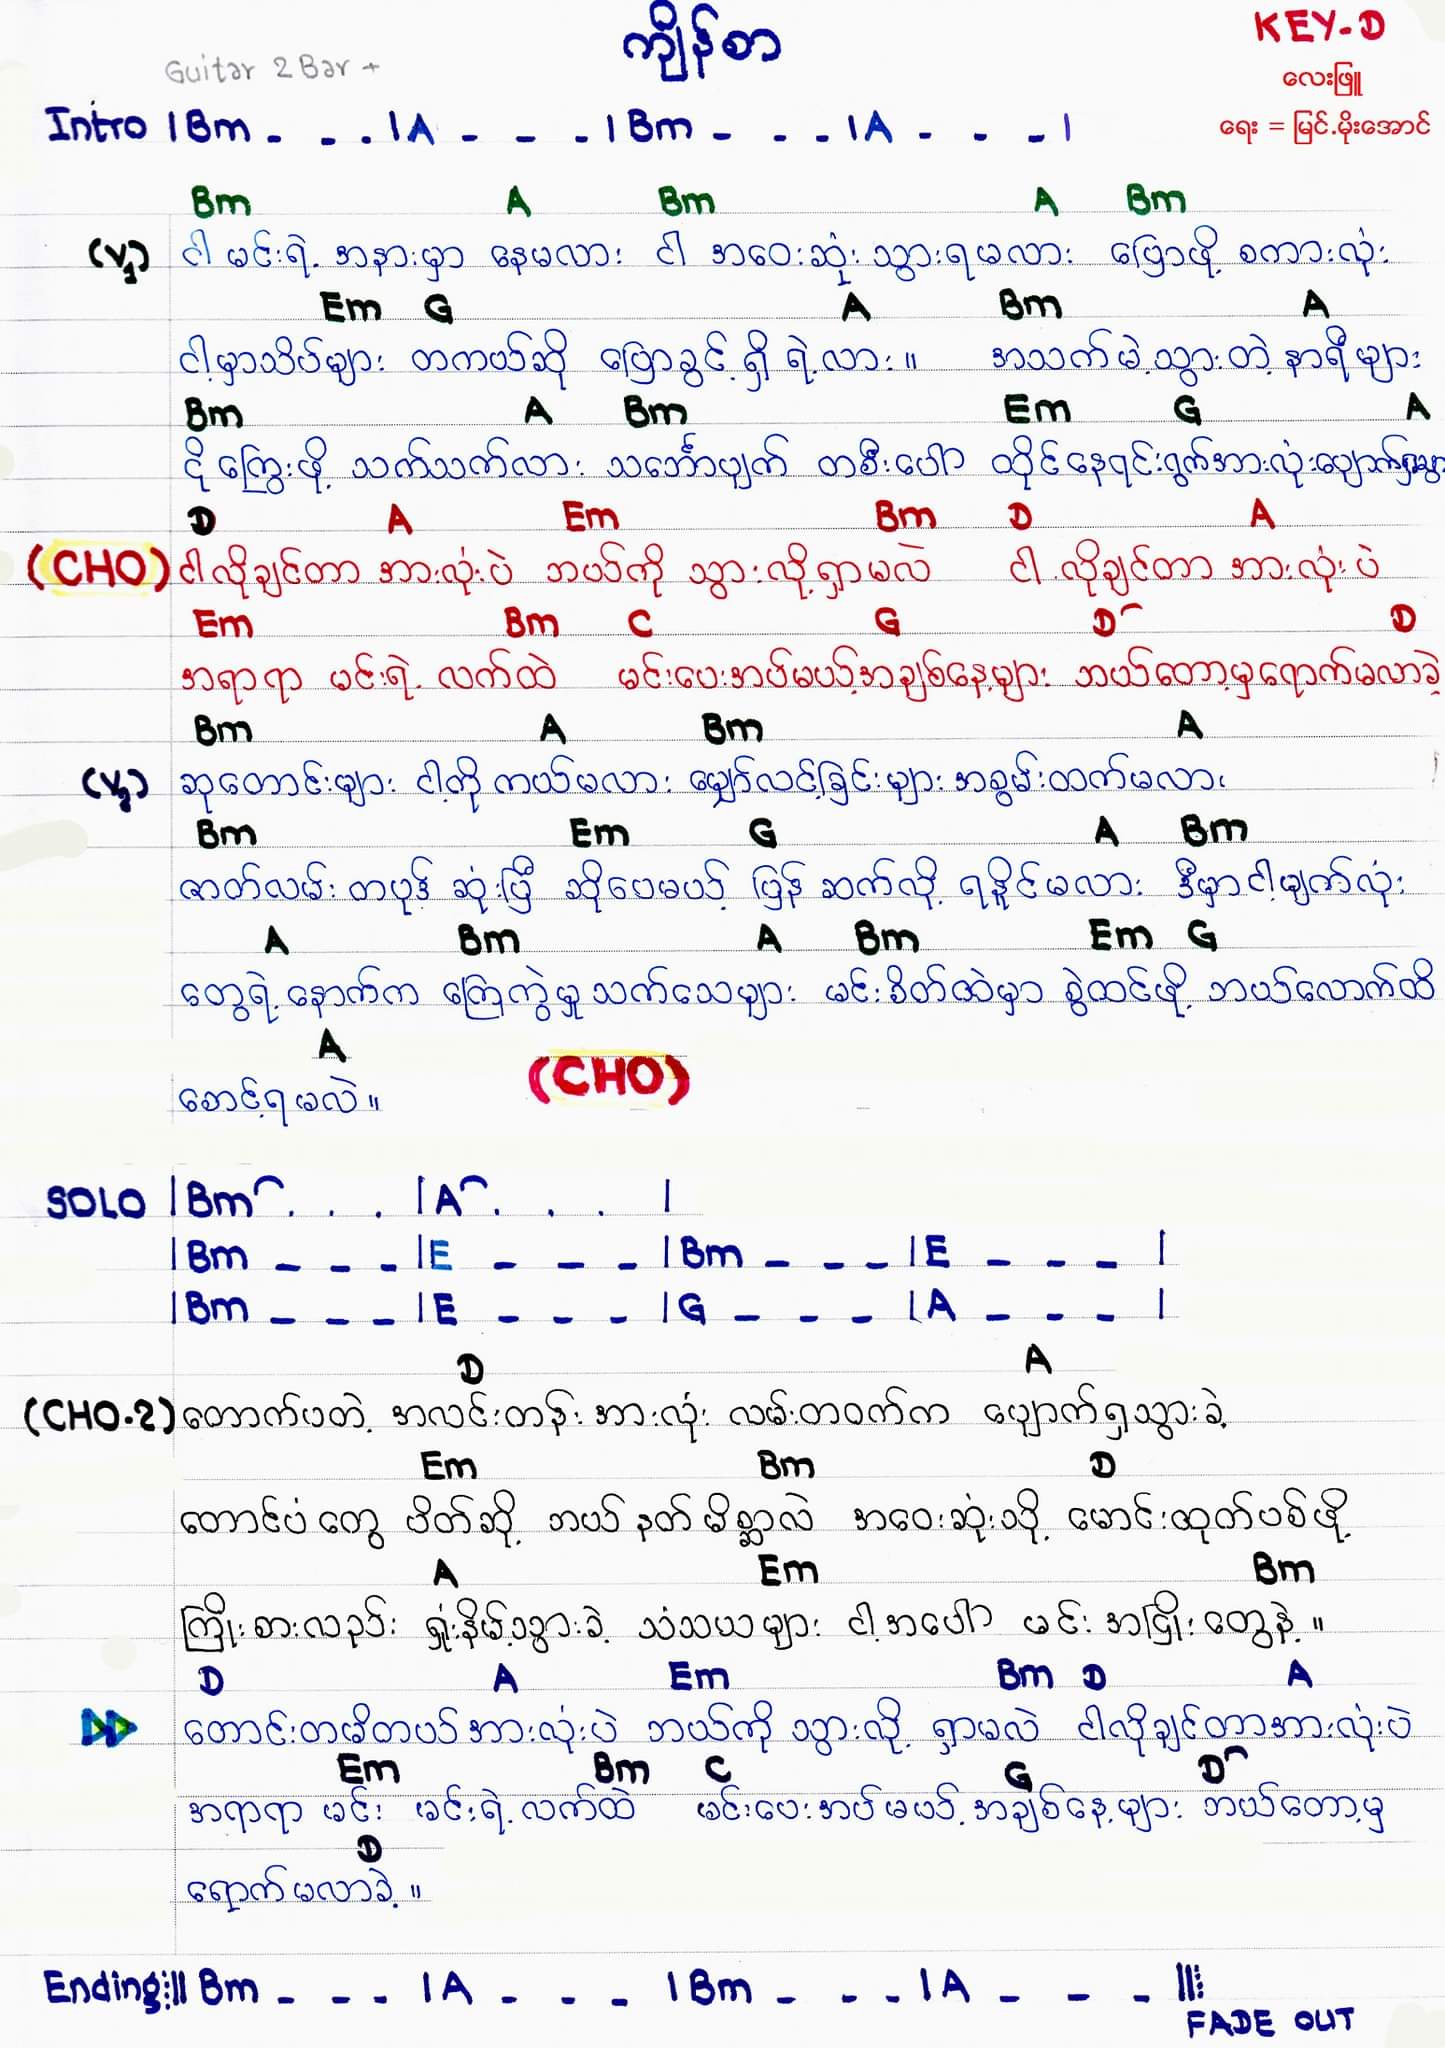 ကျိန်စာ
KEY-D
Guitar 2 Bar +
လေးဖြူ
Intro | Bm - - - | A - - - | Bm - - - | A - - - |
ရေး = မြင့်.မိုးအောင်
Bm A Bm A Bm
(V1) ငါ မင်းရဲ့ အနားမှာ နေမလား ငါ အဝေးဆုံး သွားရမလား ပြောဖို့ စကားလုံး
Em G A Bm A
ငါ့မှာသိပ်များ တကယ်ဆို ပြောခွင့် ရှိ ရဲ့လား။ အသက်မဲ့သွားတဲ့ နာရီများ
Bm A Bm Em G A
ငိုကြွေးဖို့ သက်သက်လား သင်္ဘောပျက် တစီးပေါ် ထိုင်နေရင်းရွက်အားလုံးပျောက်ရှသွား
D A Em Bm D A
(CHO) ငါလိုချင်တာ အားလုံးပဲ ဘယ်ကို သွားလို့ရှာမလဲ ငါ လိုချင်တာ အားလုံးပဲ
Em Bm C G D D
အရာရာ မင်းရဲ့ လက်ထဲ မင်းပေးအပ်မယ့်အချစ်နေ့များ ဘယ်တော့မှရောက်မလာခဲ့
Bm A Bm A
(V2) ဆုတောင်းများ ငါ့ကို ကယ်မလား မျှော်လင့်ခြင်းများ အစွမ်းထက်မလား
Bm Em G A Bm
ဇာတ်လမ်း တပုဒ် ဆုံးပြီ ဆိုပေမယ့် ပြန် ဆက်လို့ ရနိုင်မလား ဒီမှာငါ့မျက်လုံး
A Bm A Bm Em G
တွေရဲ့နောက်က ကြေကွဲမှုသက်သေများ မင်းစိတ်ထဲမှာ စွဲထင်ဖို့ ဘယ်လောက်ထိ
A
စောင့်ရမလဲ။ (CHO)
SOLO | Bm . . . | A . . . |
| Bm - - - | E - - - | Bm - - - | E - - - |
| Bm - - - | E - - - | G - - - | A - - - |
D A
(CHO-2) တောက်ပတဲ့ အလင်းတန်း အားလုံး လမ်းတဝက်က ပျောက်ရှသွားခဲ့
Em Bm D
တောင်ပံတွေ ဖိတ်ဆို့ ဘယ် နတ်မိစ္ဆာလဲ အဝေးဆုံးသို့ မောင်းထုတ်ပစ်ဖို့
A Em Bm
ကြိုးစားလည်း ရှုံးနိမ့်သွားခဲ့ သံသယများ ငါ့အပေါ် မင်း အငြိုးတွေနဲ့။
D A Em Bm D A
တောင်းတမိတယ်အားလုံးပဲ ဘယ်ကို သွားလို့ ရှာမလဲ ငါလိုချင်တာအားလုံးပဲ
Em Bm C G D
အရာရာ မင်း မင်းရဲ့လက်ထဲ မင်းပေးအပ်မယ့်အချစ်နေ့များ ဘယ်တော့မှ
D
ရောက်မလာခဲ့။
Ending :|| Bm - - - | A - - - | Bm - - - | A - - - ||:
FADE OUT